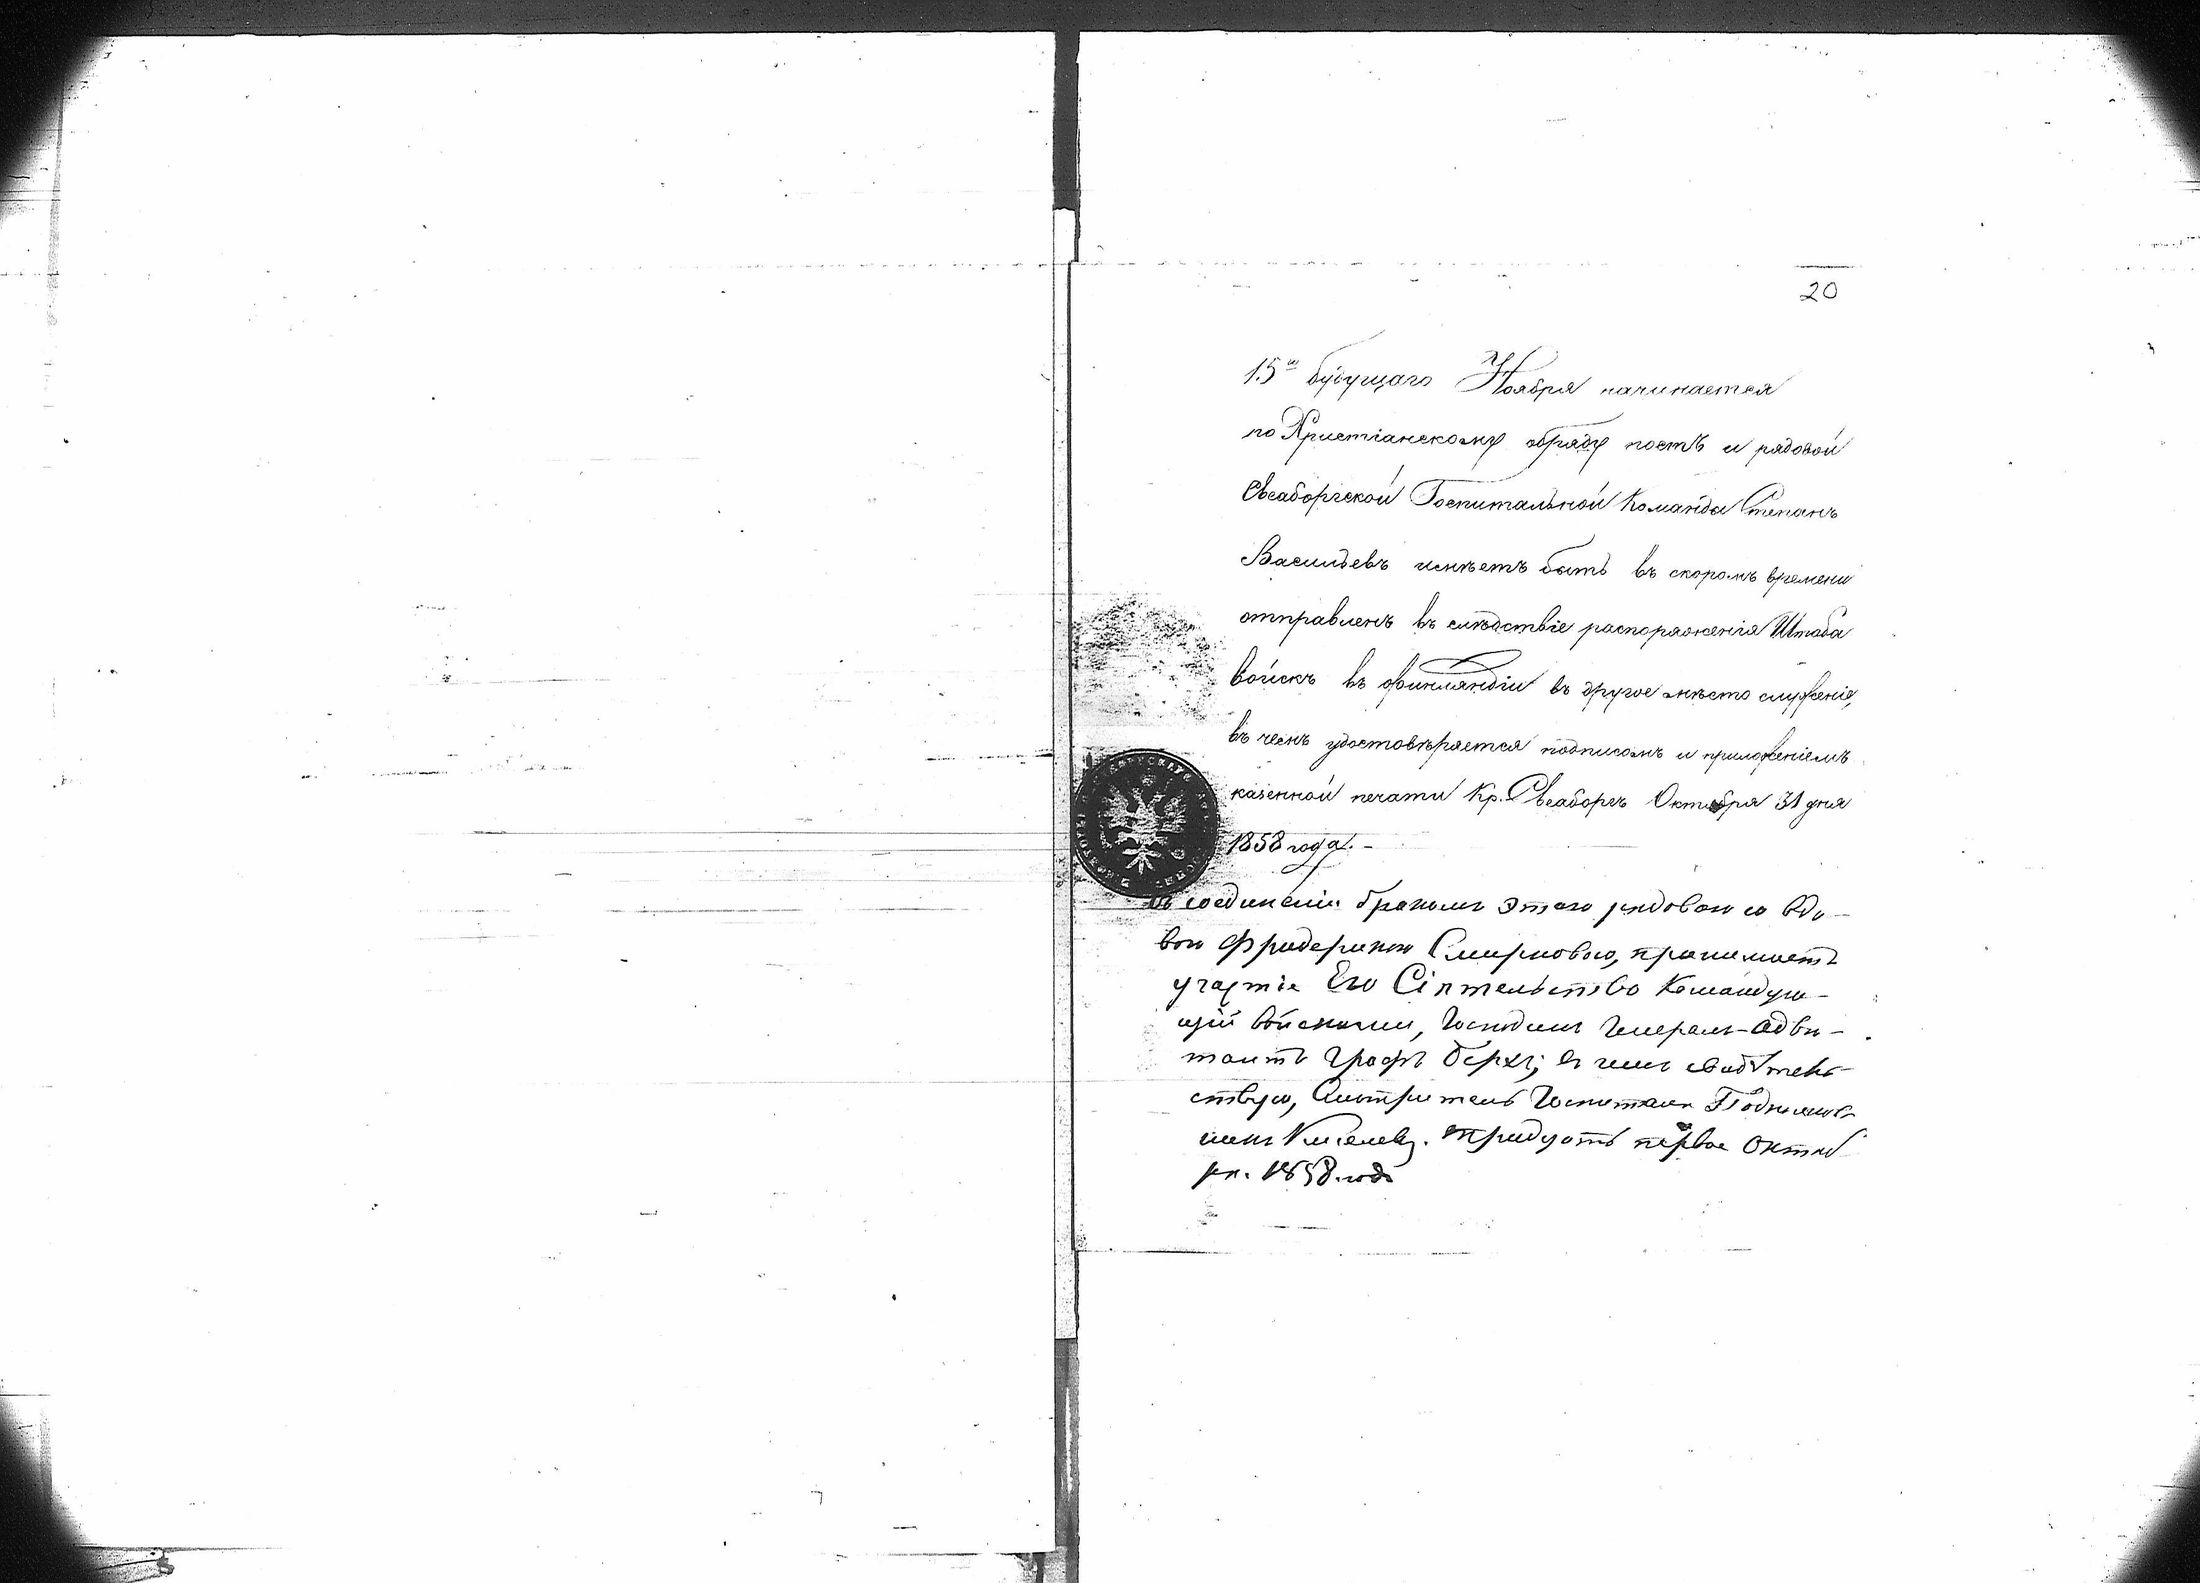 20
15го будущаго Ноября начинается
по Христіанскому обряду постъ и рядовой
Свеаборгской Госпитальной Команды Степанъ
Васильевъ имѣетъ быть въ скоромъ времени
отправленъ въ слѣдствіе распоряженія Штаба
войскъ въ Финляндіи въ другое мѣсто служенія,
въ чемъ удостовѣряется подписомъ и приложеніемъ
казенной печати Кр. Свеаборгъ Октября 31 дня
1858 года. -
въ соединеніи бракомъ этого рядового со вдо-
вою Фридерикою Смирновою, принимаетъ
участіе Его Сіятельство Командую-
щій войсками, Господинъ Генералъ-Адъю-
тантъ Графъ Бергъ; въ чемъ свидѣтель-
ствую, Смотритель Госпиталя Подполков-
никъ Киселевъ. тридцать первое Октяб
ря. 1858. года